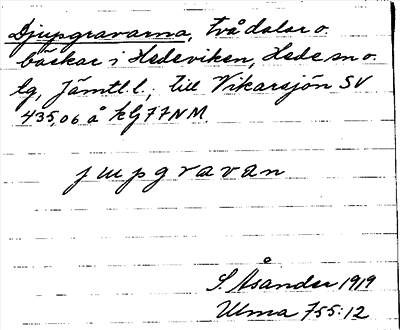 Djupgravarna, två dalar o.
bäckar i Hedeviken, Hede sn o.
lg, Jämtl. l.; till Vikarsjön SV
435,06 å kG77NM.
jupgravan
S. Åsander 1919
Ulma 755:12